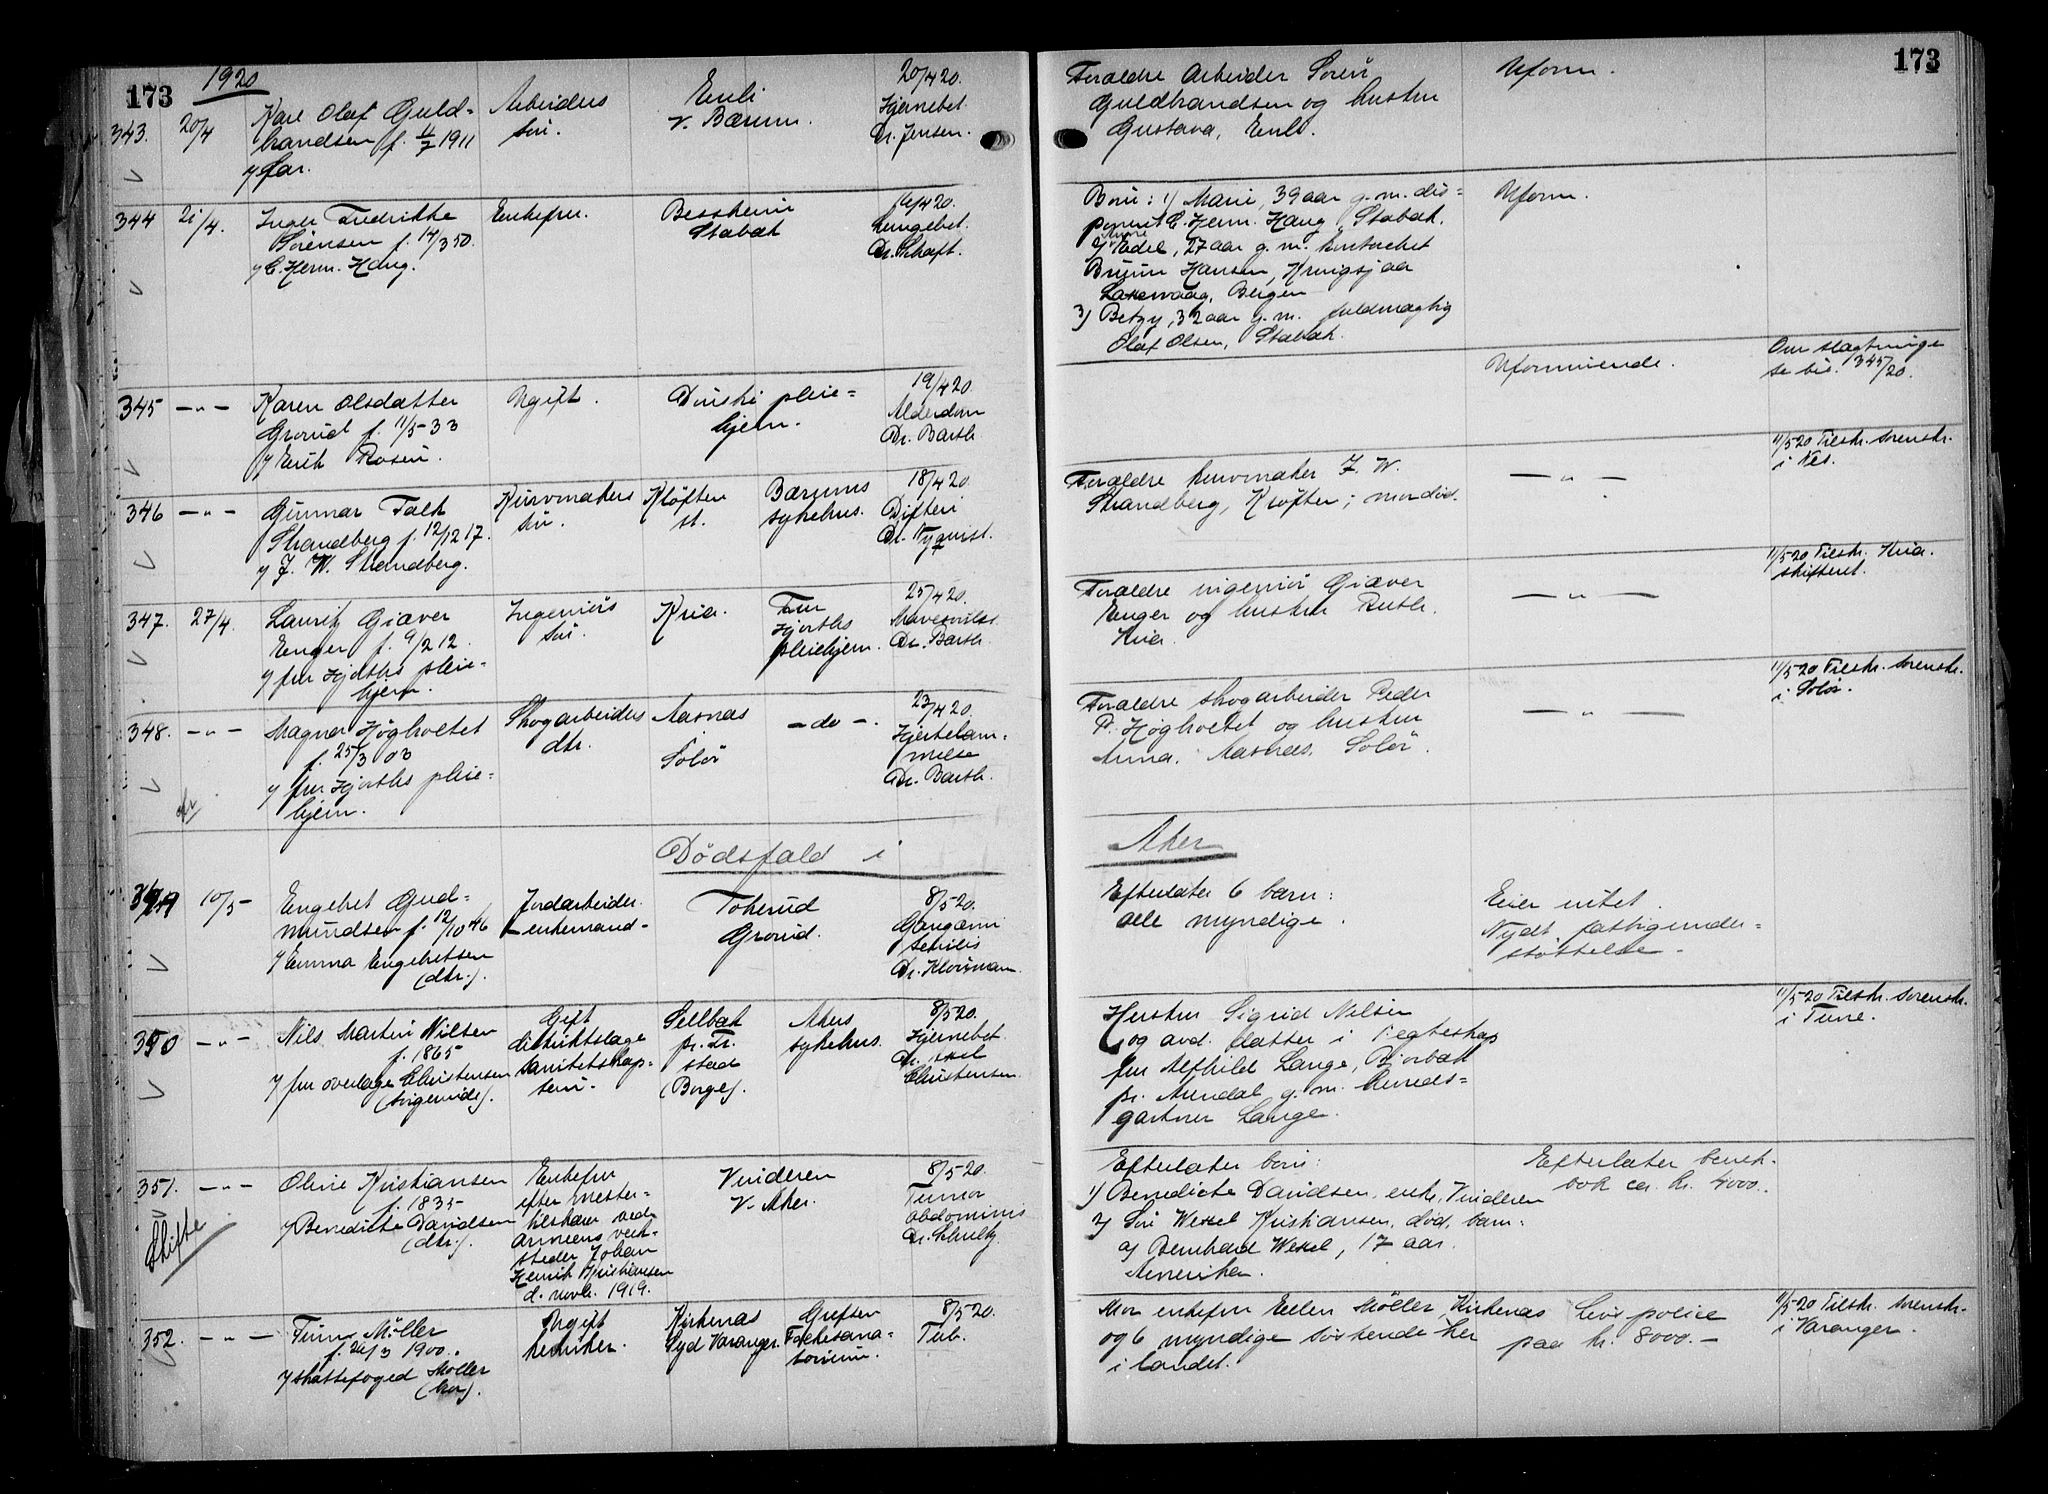 173
1920
343.
20/4
Karl Olaf Guld-
brandsen f. 4/7 1911
v/ far.
Arbeiders
søn.
Enli
V. Bærum.
20/4 20.
Hjernebet.
Dr. Jensen.
344
21/4.
Inger Fredrikke
Sørensen f. 14/3 50.
v/ C. Herm. Haug.
Enkefru.
Bessheim
Stabæk
16/4 20.
Lungebet.
Dr. Schaft.
345
— " —
Karen Olsdatter
Grorud f. 11/5 - 33
v/ Erik Rosen.
Ugift.
Dønski pleie-
hjem.
19/4 20.
Alderdom
Dr. Barth.
346
— " —
Gunnar Falk
Strandberg f. 12/12 17.
v/ J. W. Strandberg.
Kurvmakers
søn.
Kløften
st.
Bærums
sykehus.
18/4 20.
Difteri
Dr. Nyquist.
347.
27/4.
Lauritz Giæver
Enger f. 9/2 12.
v/ fru Hjorths pleie-
hjem.
Ingeniørs
søn.
Kria.
Fru
Hjorths
pleiehjem.
25/4 20.
Dr. Barth.
348.
— " —
Magner Høgholtet
f. 25/3 03
v/ fru Hjorths pleie-
hjem.
Skogarbeiders
dtr.
Aasnæs
Solør
— do —.
23/4 20.
Hjertelam-
melse
Dr. Barth.
Dødsfald i
349
10/5
Engebret Gud-
mundsen f. 12/10 46
v/ Emma Engebretsen
(dtr.).
Jordarbeider.
- enkemand -
Tokerud
Grorud.
8/5 20.
Gangæna
senilis
Dr. Klouman.
350
— " —
Nils Martin Nilsen
f. 1865
v/ fru overlæge Christensen
(svigerinde).
Gift
distriktslæge
sanitetskap-
tein.
Sellbak
pr. Fr.
stad
(Borge).
Akers
sykehus.
8/5 20.
Hjernebet.
Dr. Axel
Christensen.
351.
— " —
Skifte
Oline Kristiansen
f. 1835
v/ Benedicte Davidsen
(dtr.).
Enkefru
efter mester-
tilskjærer ved
armeens verk-
steder Johan
Henrik Kristiansen
d. novbr. 1919.
Vinderen
V. Aker.
8/5 20.
Tumor
abdominis
Dr. Schultz.
352.
— " —
Finn Møller
f. 24/3 1900.
v/ skattefoged Møller
(bror).
Ugift
kemiker.
Kirkenæs
Syd Varanger.
Grefsen
Folkesana-
torium.
8/5 20.
Tub.
173
Forældre Arbeider Søren
Guldbrandsen og hustru
Gustava, Enli.
Uform.
Børn: 1) Marie, 39 aar g. m. dis-
ponent C. Herm. Haug, Stabæk.
2) Edel, 27 aar g. m. kontorchef
Bruun Hansen, Kringsjaa
Laksevaag, Bergen
3) Betzy, 32 aar g. m. fuldmægtig
Olaf Olsen, Stabæk.
Uform.
Uformuende.
Om slægtninge
se bil. 345/20.
Forældre kurvmaker J. W.
Strandberg, Kløften; mor død.
— " —
11/5 20 Tilskr. sorenskr.
i Nes.
Forældre ingeniør Giæver
Enger og hustru Ruth.
Kria.
— " —
11/5 20 Tilskr. Kria.
skifteret.
Forældre skogarbeider Peder
P. Høgholtet og hustru
Anna. Aasnæs. Solør.
— " —
11/5 20 Tilskr. sorenskr.
i Solør.
Aker
Efterlater 6 barn:
alle myndige.
Eier intet.
Nydt fattigunder-
støttelse.
Hustru Sigrid Nilsen
og avd. datter i 1. egteskap
fru Alfhild Lange, Bjorbæk
pr. Arendal g. m. herreds-
gartner Lange.
11/5 20 Tilskr. sorenskr.
i Tune.
Efterlater børn:
1) Benedicte Davidsen, enke, Vinderen
2) Søn Wessel Kristiansen, død, barn:
a) Bernhard Wessel, 17 aar.
Amerika.
Efterlater bank-
bok ca. kr. 4000.
Mor enkefru Ellen Møller, Kirkenæs
og 6 myndige søskende her
i landet.
Livspolice
paa kr. 8000.-
11/5 20 Tilskr. sorenskr.
i Varanger.